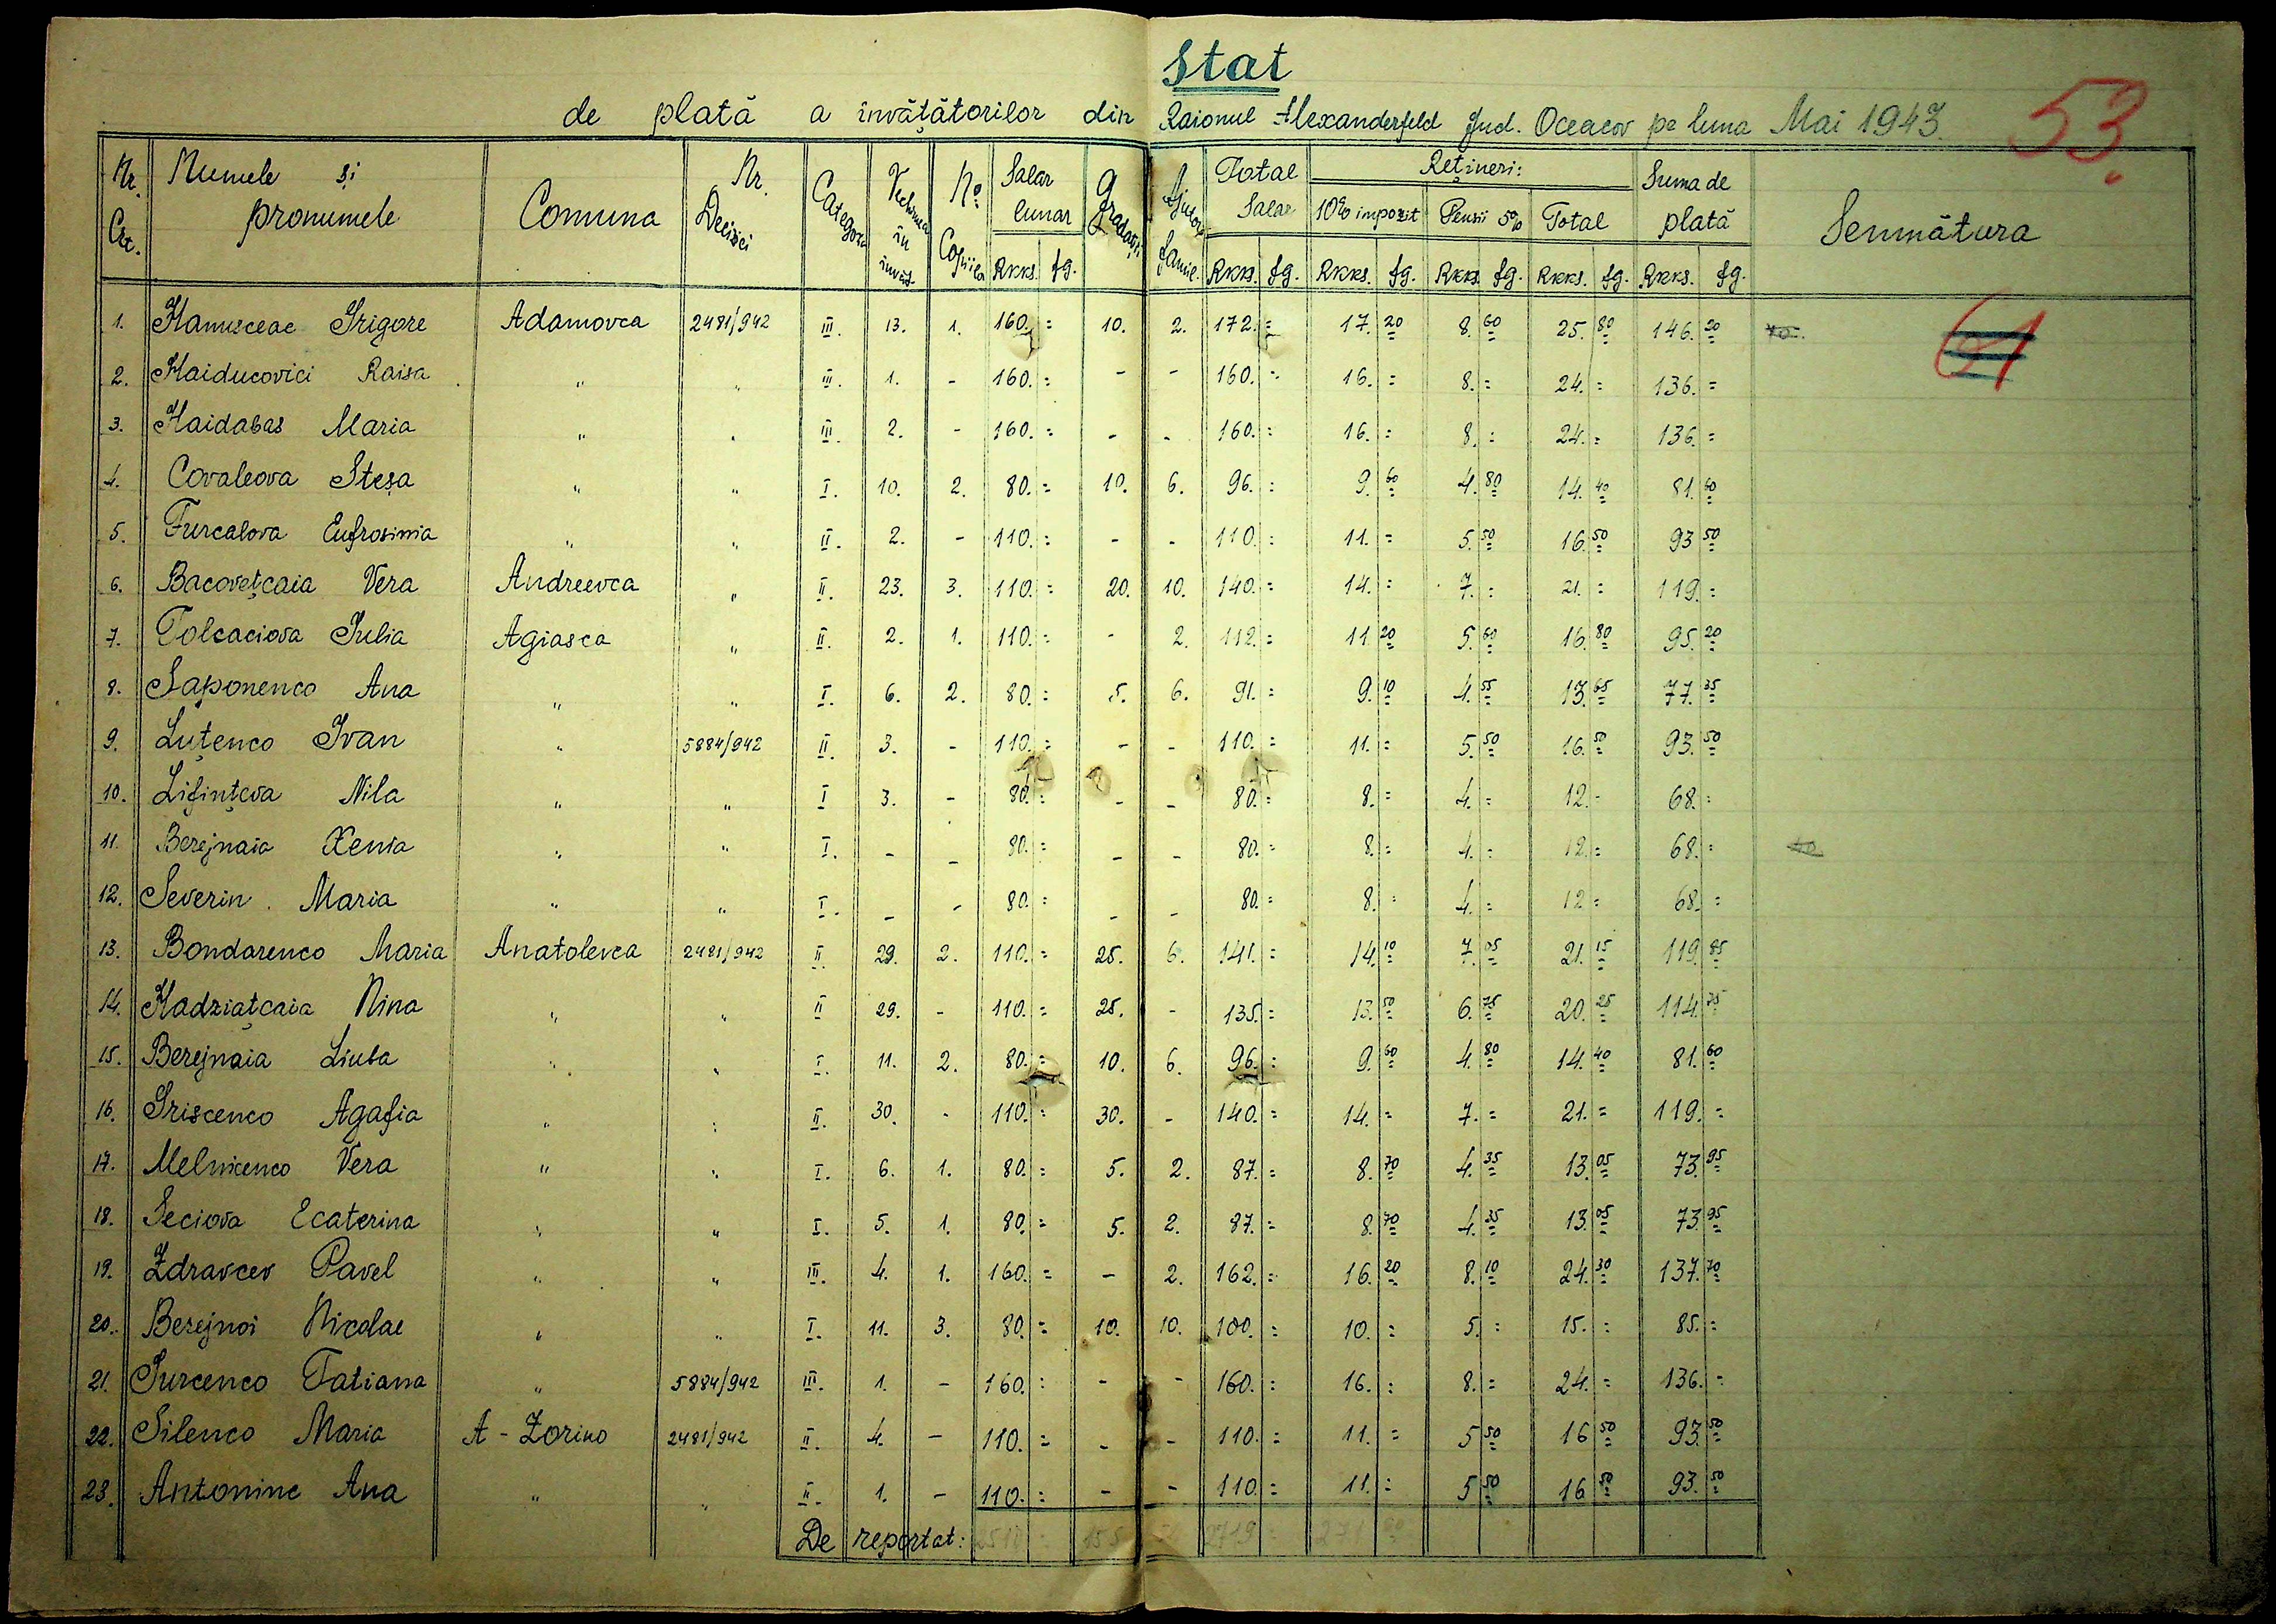 Stat
de plată a învăţătorilor din Raionul Alexanderfeld Jud. Oceacov pe luna Mai 1943.
53
Nr. Crt. Numele și pronumele Comuna Nr. Decizici Categoria Vechimea în învăț. No. Copiilor Salar lunar Rkks. fg. Gradații Ajutor famil. Total Salar Rkks. fg. Rețineri: 10% impozit Rkks. fg. Pensii 5% Rkks. fg. Total Rkks. fg. Suma de plată Rkks. fg. Semnătura
1. Hanusceac Grigore Adamovca 2481/942 III. 13. 1. 160. = 10. 2. 172. = 17. 20 8. 60 25. 80 146. 20
2. Haiducovici Raisa " " III. 1. - 160. = - - 160. = 16. = 8. = 24. = 136. =
3. Haidabas Maria " " III. 2. - 160. = - - 160. = 16. = 8. = 24. = 136. =
4. Covaleova Steșa " " I. 10. 2. 80. = 10. 6. 96. = 9. 60 4. 80 14. 40 81. 60
5. Furcalova Eufrosinia " " II. 2. - 110. = - - 110. = 11. = 5. 50 16. 50 93 50
6. Bacovețcaia Vera Andreevca " II. 23. 3. 110. = 20. 10. 140. = 14. = 7. = 21. = 119. =
7. Tolcaciova Iulia Agiasca " II. 2. 1. 110. = - 2. 112. = 11. 20 5. 60 16. 80 95. 20
8. Saponenco Ana " " I. 6. 2. 80. = 5. 6. 91. = 9. 10 4. 55 13. 65 77. 35
9. Luțenco Ivan " 5884/942 II. 3. - 110. = - - 110. = 11. = 5. 50 16. 50 93. 50
10. Lifințeva Nila " " I 3. - 80. = - - 80. = 8. = 4. = 12. = 68. =
11. Berejnaia Xenia " " I. - - 80. = - - 80. = 8. = 4. = 12. = 68. =
12. Severin Maria " " I. - - 80. = - - 80. = 8. = 4. = 12 = 68. =
13. Bondarenco Maria Anatolevca 2481/942 II. 29. 2. 110. = 25. 6. 141. = 14. 10 7. 05 21. 15 119. 85
14. Hadziațcaia Nina " " II 29. - 110. = 25. - 135. = 13. 50 6. 75 20. 25 114. 75
15. Berejnaia Liuba " " I. 11. 2. 80. = 10. 6. 96. = 9. 60 4. 80 14. 40 81. 60
16. Griscenco Agafia " " II. 30. - 110. = 30. - 140. = 14. = 7. = 21. = 119. =
17. Melnicenco Vera " " I. 6. 1. 80. = 5. 2. 87. = 8. 70 4. 35 13. 05 73. 95
18. Seciova Ecaterina " " I. 5. 1. 80 = 5. 2. 87. = 8. 70 4. 35 13. 05 73. 95
19. Zdravcev Pavel " " III. 4. 1. 160. = - 2. 162. = 16. 20 8. 10 24. 30 137. 70
20. Berejnoi Nicolae " " I. 11. 3. 80. = 10. 10. 100. = 10. = 5. = 15. = 85. =
21. Iurcenco Tatiana " 5884/942 III. 1. - 160. = - - 160. = 16. = 8. = 24. = 136. =
22. Silenco Maria A - Zorino 2481/942 II. 4. - 110. = - - 110. = 11. = 5 50 16 50 93. 50
23. Antonine Ana " " II. 1. - 110. = - - 110. = 11. = 5 50 16 50 93. 50
De reportat: 2719